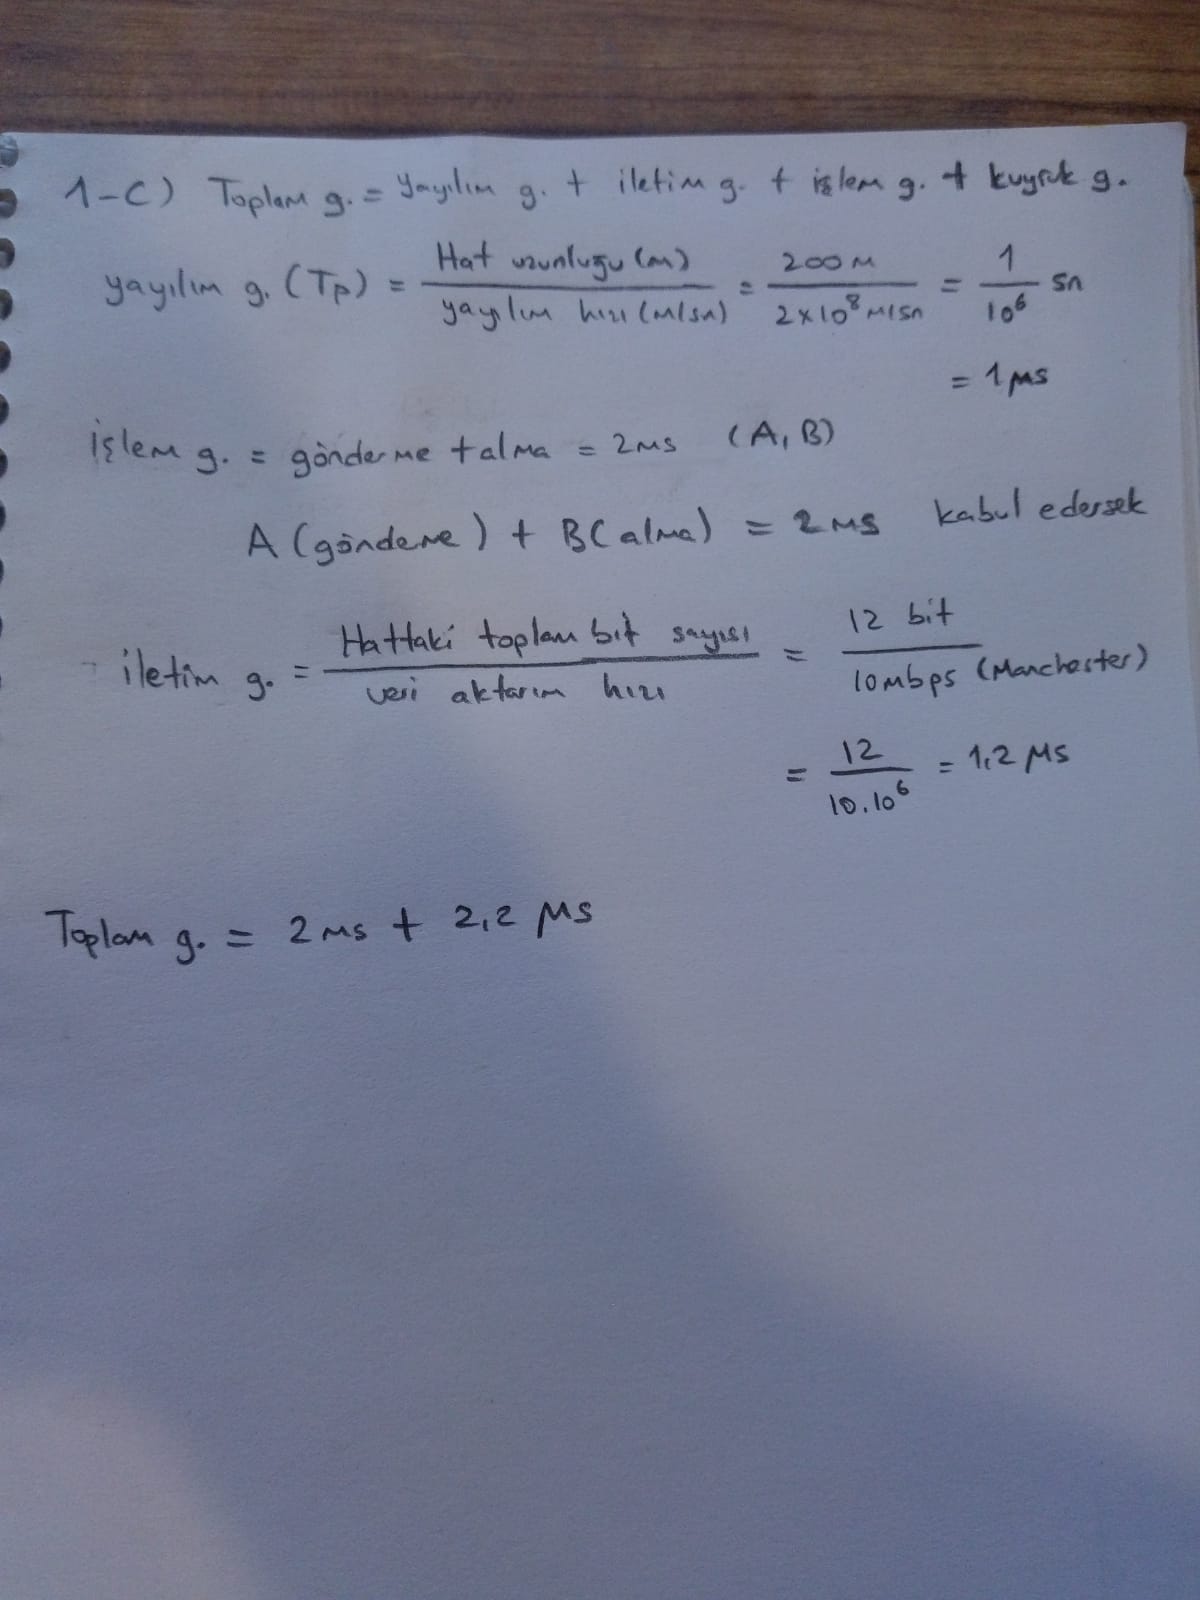 1-C) Toplam g. = Yayılım g. + iletim g. + işlem g. + kuyruk g.
yayılım g. (Tp) = Hat uzunluğu (m) / yayılım hızı (m/sn) = 200 m / 2x10⁸ m/sn = 1 / 10⁶ sn
= 1 μs
işlem g. = gönderme + alma = 2ms (A, B)
A (gönderme) + B (alma) = 2 ms kabul edersek
iletim g. = Hattaki toplam bit sayısı / veri aktarım hızı = 12 bit / 10mbps (Manchester)
= 12 / 10.10⁶ = 1,2 μs
Toplam g. = 2 ms + 2,2 μs